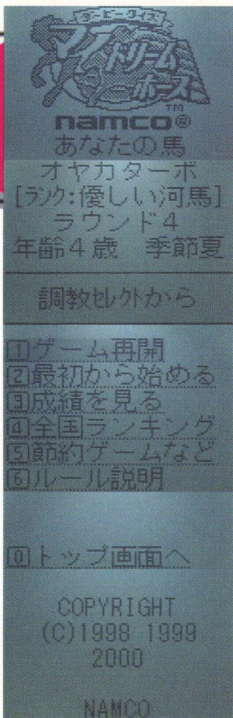 ダービークイズ
マイドリーム
ホース
TM
namco®
あなたの馬
オヤカターボ
[ランク:優しい河馬]
ラウンド4
年齢4歳 季節夏
調教セレクトから
1ゲーム再開
2最初から始める
3成績を見る
4全国ランキング
5節約ゲームなど
6ルール説明
0トップ画面へ
COPYRIGHT
(C)1998 1999
2000
NAMCO